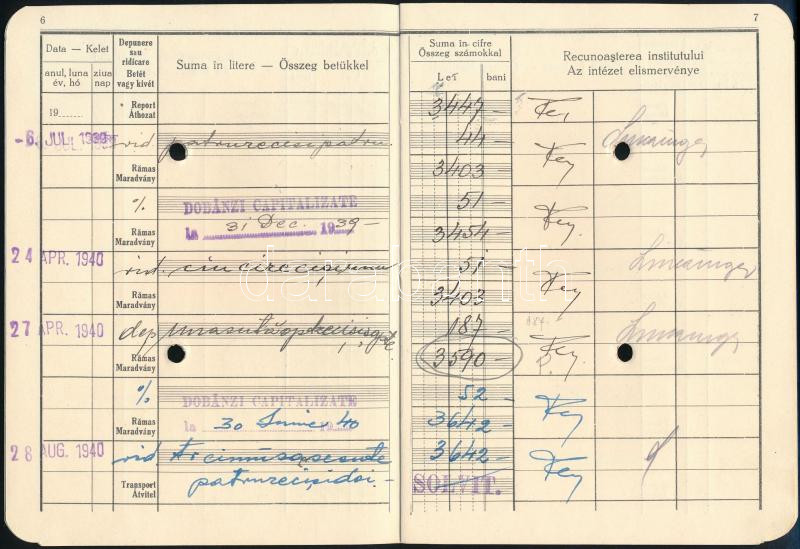 6
7
Data — Kelet
anul, luna
év, hó
ziua
nap
Depunere
sau
ridicare
Betét
vagy kivét
Suma in litere — Összeg betükkel
Suma in cifre
Összeg számokkal
Lei
bani
Recunoașterea institutului
Az intézet elismervénye
19
Report
Áthozat
3447 —
-6. JUL. 1939
rid patruzecisipatru
44 —
Rămas
Maradvány
3403 —
%
DOBÂNZI CAPITALIZATE
la 31 Dec. 1939 —
51 —
Rămas
Maradvány
3454 —
24 APR. 1940
rid. cincizecisiunu
51 —
Rămas
Maradvány
3403 —
27 APR. 1940
dep unasutăoptzecisișapte
187 —
Rămas
Maradvány
3590 —
%
DOBÂNZI CAPITALIZATE
la 30 Iunie 40
52 —
Rămas
Maradvány
3642 —
28 AUG. 1940
rid treimiisasesute
patruzecisidoi —
3642 —
Transport
Átvitel
SOLVIT.
darabanth